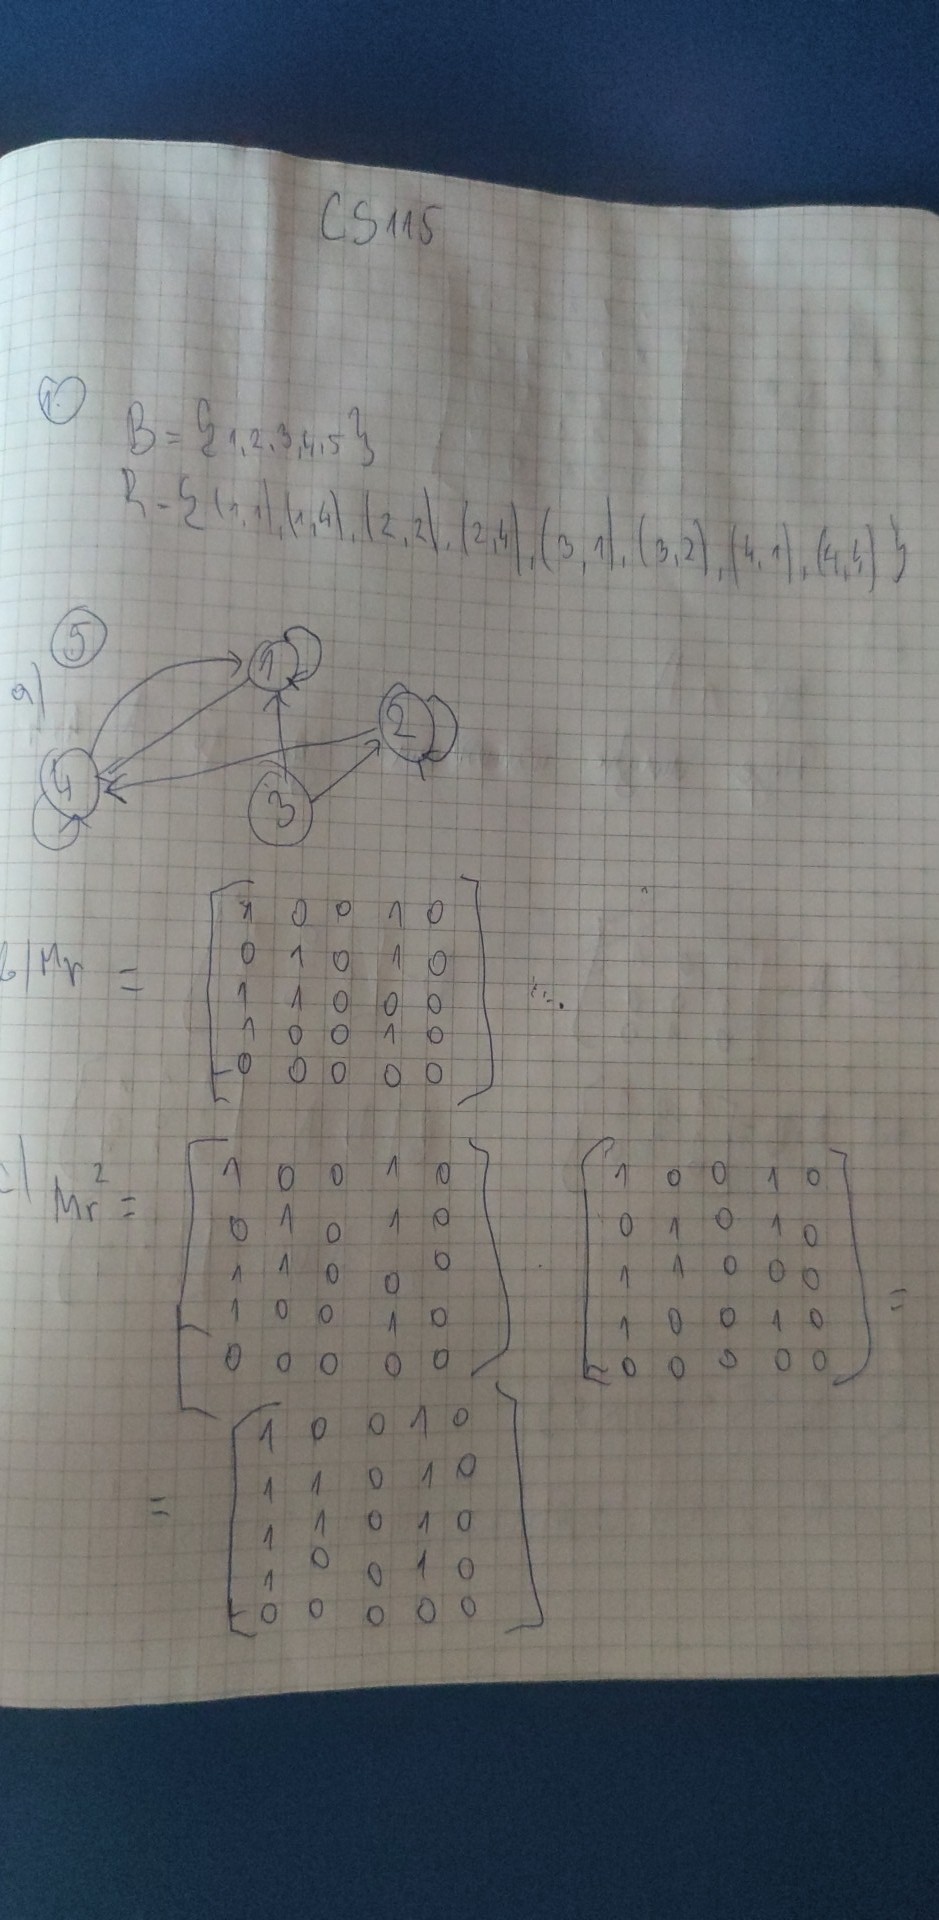 CS115
1.
B = {1,2,3,4,5}
R = {(1,1),(1,4),(2,2),(2,4),(3,1),(3,2),(4,1),(4,4)}
a)
5 1
2
4 3
b) Mr =
1 0 0 1 0
0 1 0 1 0
1 1 0 0 0
1 0 0 1 0
0 0 0 0 0
c) Mr² =
1 0 0 1 0 1 0 0 1 0
0 1 0 1 0 0 1 0 1 0
1 1 0 0 0 · 1 1 0 0 0 =
1 0 0 1 0 1 0 0 1 0
0 0 0 0 0 0 0 0 0 0
1 0 0 1 0
1 1 0 1 0
= 1 1 0 1 0
1 0 0 1 0
0 0 0 0 0